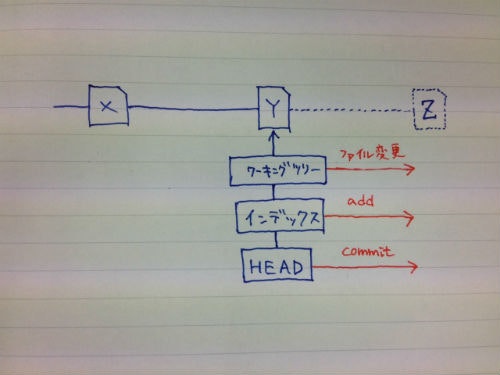 X
Y
Z
ワーキングツリー
ファイル変更
インデックス
add
HEAD
commit